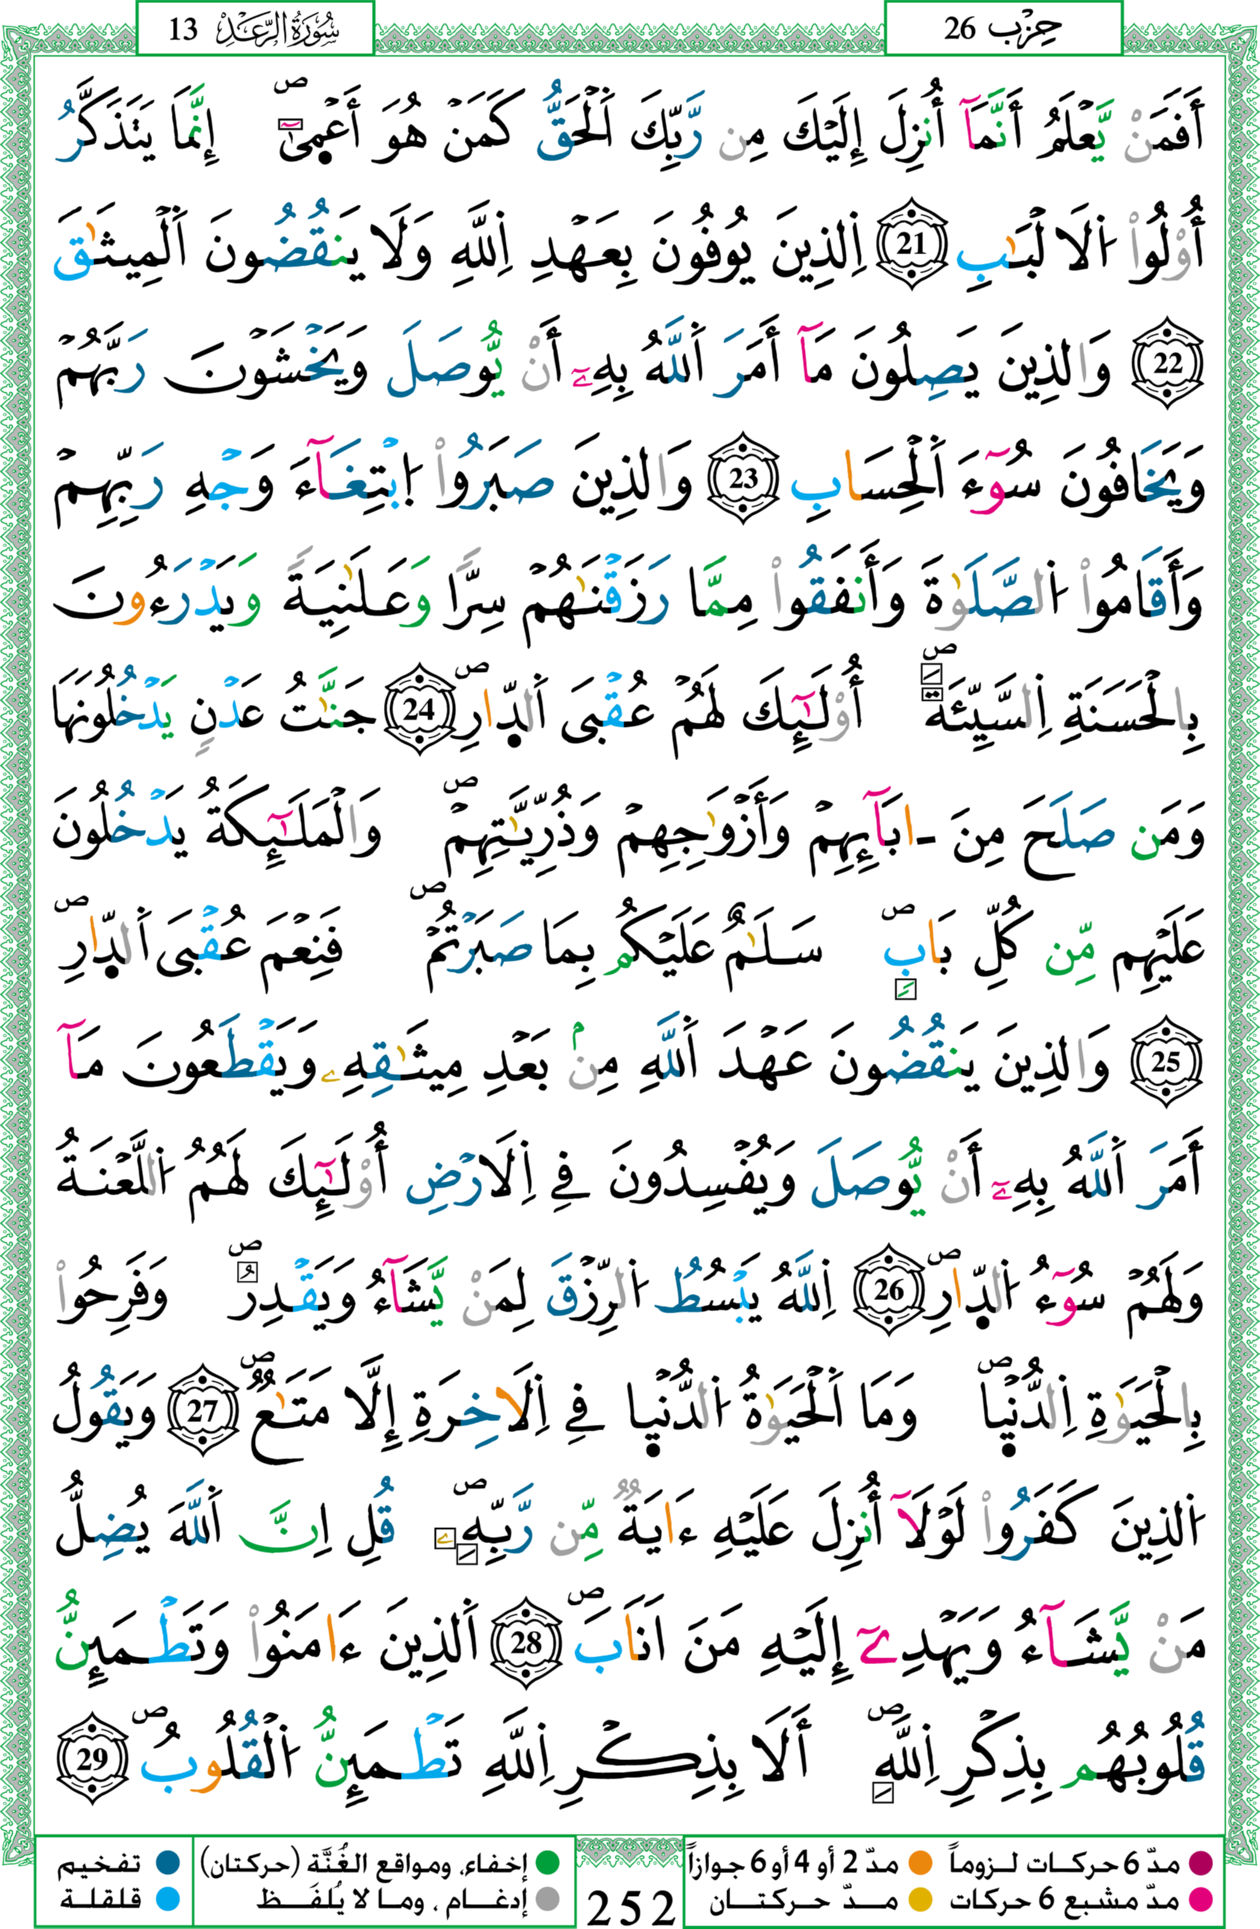 حِزْب 26
سُورَةُ الرَّعْدِ 13
أَفَمَنْ يَّعْلَمُ أَنَّمَآ أُنزِلَ إِلَيْكَ مِن رَّبِّكَ اَ۬لْحَقُّ كَمَنْ هُوَ أَعْم۪ىٰٓۖ إِنَّمَا يَتَذَكَّرُ
أُوْلُواْ اُ۬لَالْبَٰبِ 21 اِ۬لذِينَ يُوفُونَ بِعَهْدِ اِ۬للَّهِ وَلَا يَنقُضُونَ اَ۬لْمِيثَٰقَ
22 وَالذِينَ يَصِلُونَ مَآ أَمَرَ اَ۬للَّهُ بِهِۦٓ أَنْ يُّوصَلَ وَيَخْشَوْنَ رَبَّهُمْ
وَيَخَافُونَ سُوٓءَ اَ۬لْحِسَابِ 23 وَالذِينَ صَبَرُواْ اُ۪بْتِغَآءَ وَجْهِ رَبِّهِمْ
وَأَقَامُواْ اُ۬لصَّلَوٰةَ وَأَنفَقُواْ مِمَّا رَزَقْنَٰهُمْ سِرّاً وَعَلَٰنِيَةً وَيَدْرَءُونَ
بِالْحَسَنَةِ اِ۬لسَّيِّئَةَ ص أُوْلَٰٓئِكَ لَهُمْ عُقْبَى اَ۬لدّ۪ارِ ص 24 جَنَّٰتُ عَدْنٍ يَدْخُلُونَهَا
وَمَن صَلَحَ مِنَ ـ ابَآئِهِمْ وَأَزْوَٰجِهِمْ وَذُرِّيَّٰتِهِمْ ص وَالْمَلَٰٓئِكَةُ يَدْخُلُونَ
عَلَيْهِم مِّن كُلِّ بَابٍ ص سَلَٰمٌ عَلَيْكُم بِمَا صَبَرْتُمْ ص فَنِعْمَ عُقْبَى اَ۬لدّ۪ارِ ص
25 وَالذِينَ يَنقُضُونَ عَهْدَ اَ۬للَّهِ مِنۢ بَعْدِ مِيثَٰقِهِۦ وَيَقْطَعُونَ مَآ
أَمَرَ اَ۬للَّهُ بِهِۦٓ أَنْ يُّوصَلَ وَيُفْسِدُونَ فِي اِ۬لَارْضِ أُوْلَٰٓئِكَ لَهُمُ اُ۬للَّعْنَةُ
وَلَهُمْ سُوٓءُ اُ۬لدّ۪ارِ ص 26 اِ۬للَّهُ يَبْسُطُ اُ۬لرِّزْقَ لِمَنْ يَّشَآءُ وَيَقْدِرُ ص وَفَرِحُواْ
بِالْحَيَوٰةِ اِ۬لدُّنْي۪ا ص وَمَا اَ۬لْحَيَوٰةُ اُ۬لدُّنْي۪ا فِي اِ۬لَاخِرَةِ إِلَّا مَتَٰعٌ ص 27 وَيَقُولُ
اُ۬لذِينَ كَفَرُواْ لَوْلَآ أُنزِلَ عَلَيْهِ ءَايَةٌ مِّن رَّبِّهِۦ ص قُلِ اِنَّ اَ۬للَّهَ يُضِلُّ
مَنْ يَّشَآءُ وَيَهْدِےٓ إِلَيْهِ مَنَ اَنَابَ ص 28 اَ۬لذِينَ ءَامَنُواْ وَتَطْمَئِنُّ
قُلُوبُهُم بِذِكْرِ اِ۬للَّهِ ص أَلَا بِذِكْرِ اِ۬للَّهِ تَطْمَئِنُّ اُ۬لْقُلُوبُ ص 29
مدّ 6 حركات لـزوماً مدّ 2 أو 4 أو 6 جوازاً
مدّ مشبع 6 حركات مـدّ حـركـتـان
252
إخفاء، ومواقع الغُنَّة (حركتان) تفخيم
إدغـام ، ومـا لا يُلفَـظ قلقلة